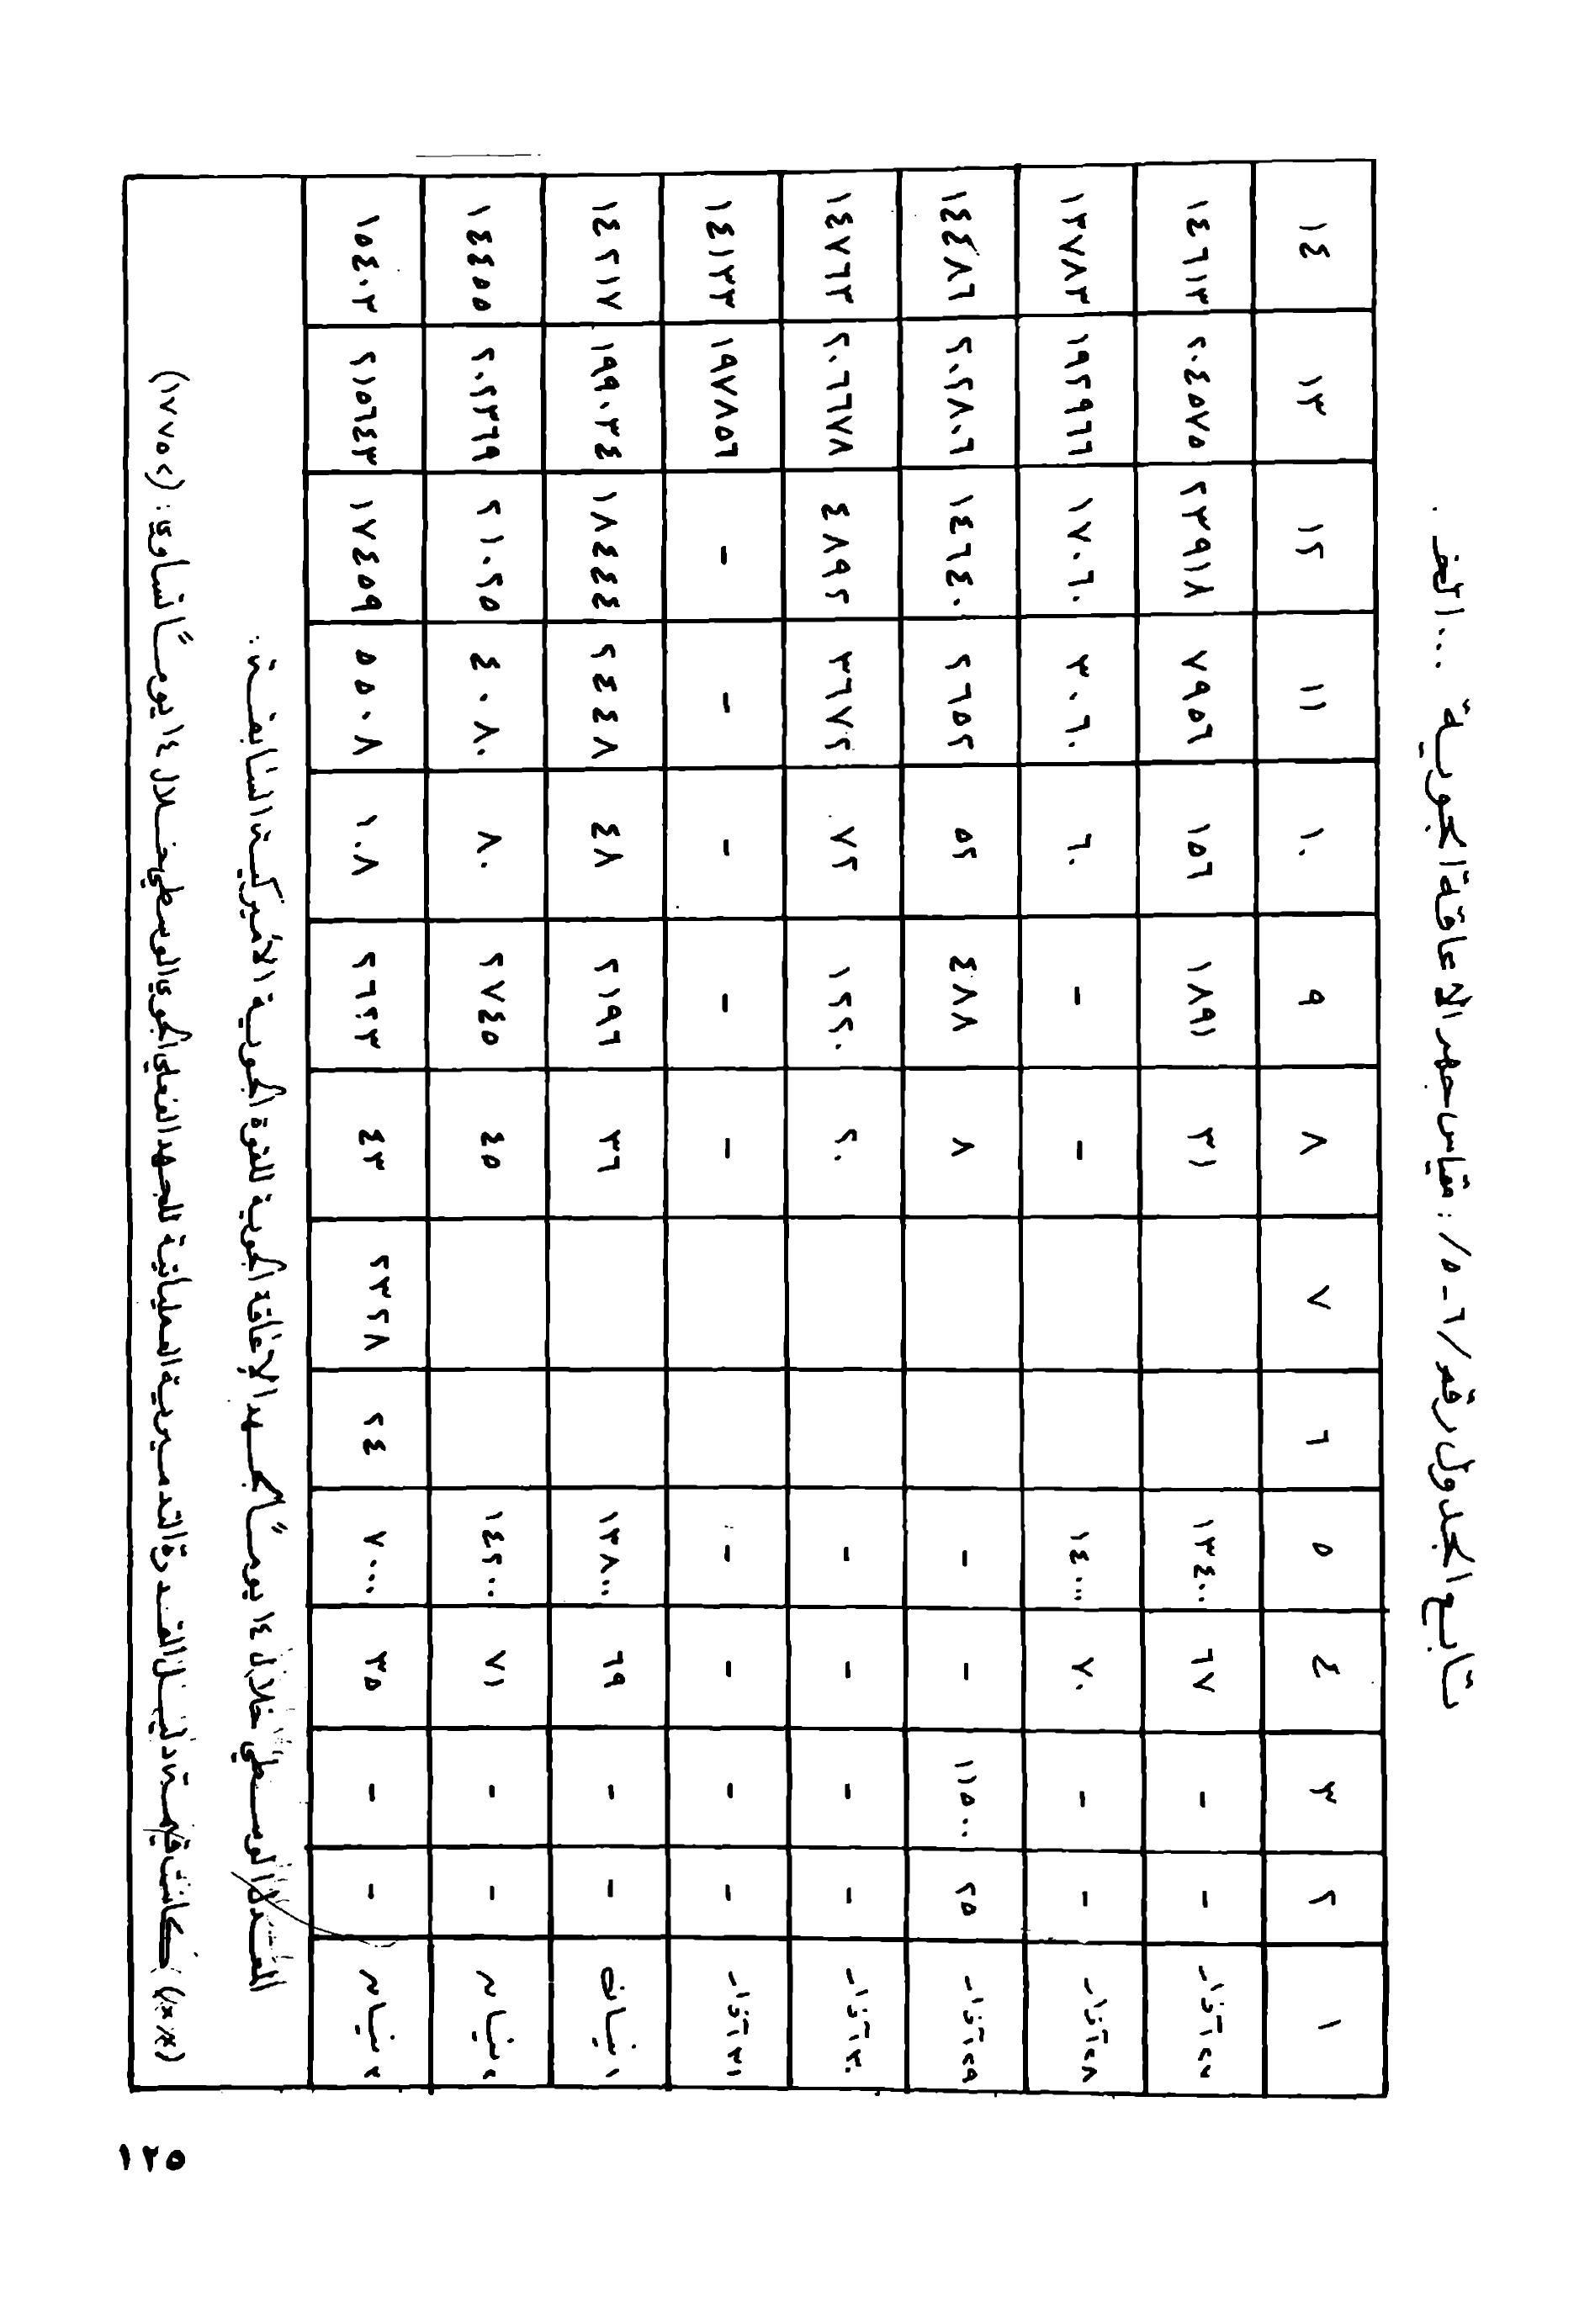 تابع الجدول رقم /٦-٥/ : مقياس جهد الاعاقة الجوية ...الخ.
١ ٢ ٣ ٤ ٥ ٦ ٧ ٨ ٩ ١٠ ١١ ١٢ ١٣ ١٤
٢٧ آذار - - ٦٧ ١٣٤٠٠ ٣١ ١٨٩١ ١٥٦ ٧٩٥٦ ٢٣٩١٨ ٢٠٤٥٧٥ ١٤٦١٣
٢٨ آذار - - ٧٠ ١٤٠٠٠ - - ٦٠ ٣٠٦٠ ١٧٠٦٠ ١٩٢٩٦٦ ١٣٧٨٣
٢٩ آذار ٢٥ ١١٥٠٠ - - ٨ ٤٨٨ ٥٢ ٢٦٥٢ ١٤٦٤٠ ٢٠٢٨٠٦ ١٤٤٨٦
٣٠ آذار - - - - ٢٠ ١٢٢٠ ٧٢ ٣٦٧٢ ٤٨٩٢ ٢٠٦٦٧٨ ١٤٧٦٣
٣١ آذار - - - - - - - - - ١٩٧٨٥٦ ١٤١٣٣
١ نيسان - - ٦٩ ١٣٨٠٠ ٣٦ ٢١٩٦ ٤٨ ٢٤٤٨ ١٨٤٤٤ ١٩٩٠٣٤ ١٤٢١٧
٢ نيسان - - ٧١ ١٤٢٠٠ ٤٥ ٢٧٤٥ ٨٠ ٤٠٨٠ ٢١٠٢٥ ٢٠٢٣٦٩ ١٤٤٥٥
٣ نيسان - - ٣٥ ٧٠٠٠ ٢٤ ٢٣٢٨ ٤٣ ٢٦٢٣ ١٠٨ ٥٥٠٨ ١٧٤٥٩ ٢١٥٦٤٣ ١٥٤٠٣
المعدل الوسطي خلال ١٤ يوماً لجهد الإعاقة الجوية للقوة الجوية الأميركية السابقة.
(××) كانت قيمة دليل القدرة التدميرية العملياتية للجهد الفعلي الجوي الوسطي خلال ١٤ يوماً تساوي: (١٧٧٥٢)
١٢٥